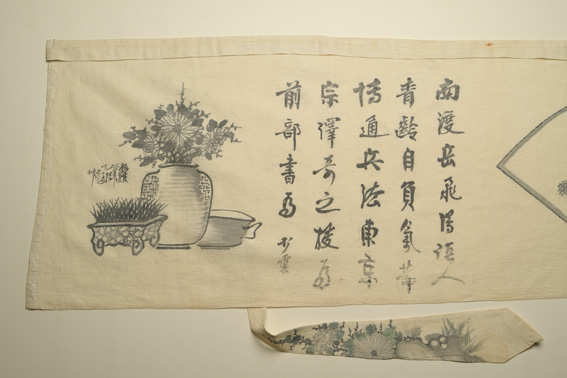 南渡岳飛湯陰人
青齡自負氣節
博通兵法東京
宗澤奇之授爲
前部書爲